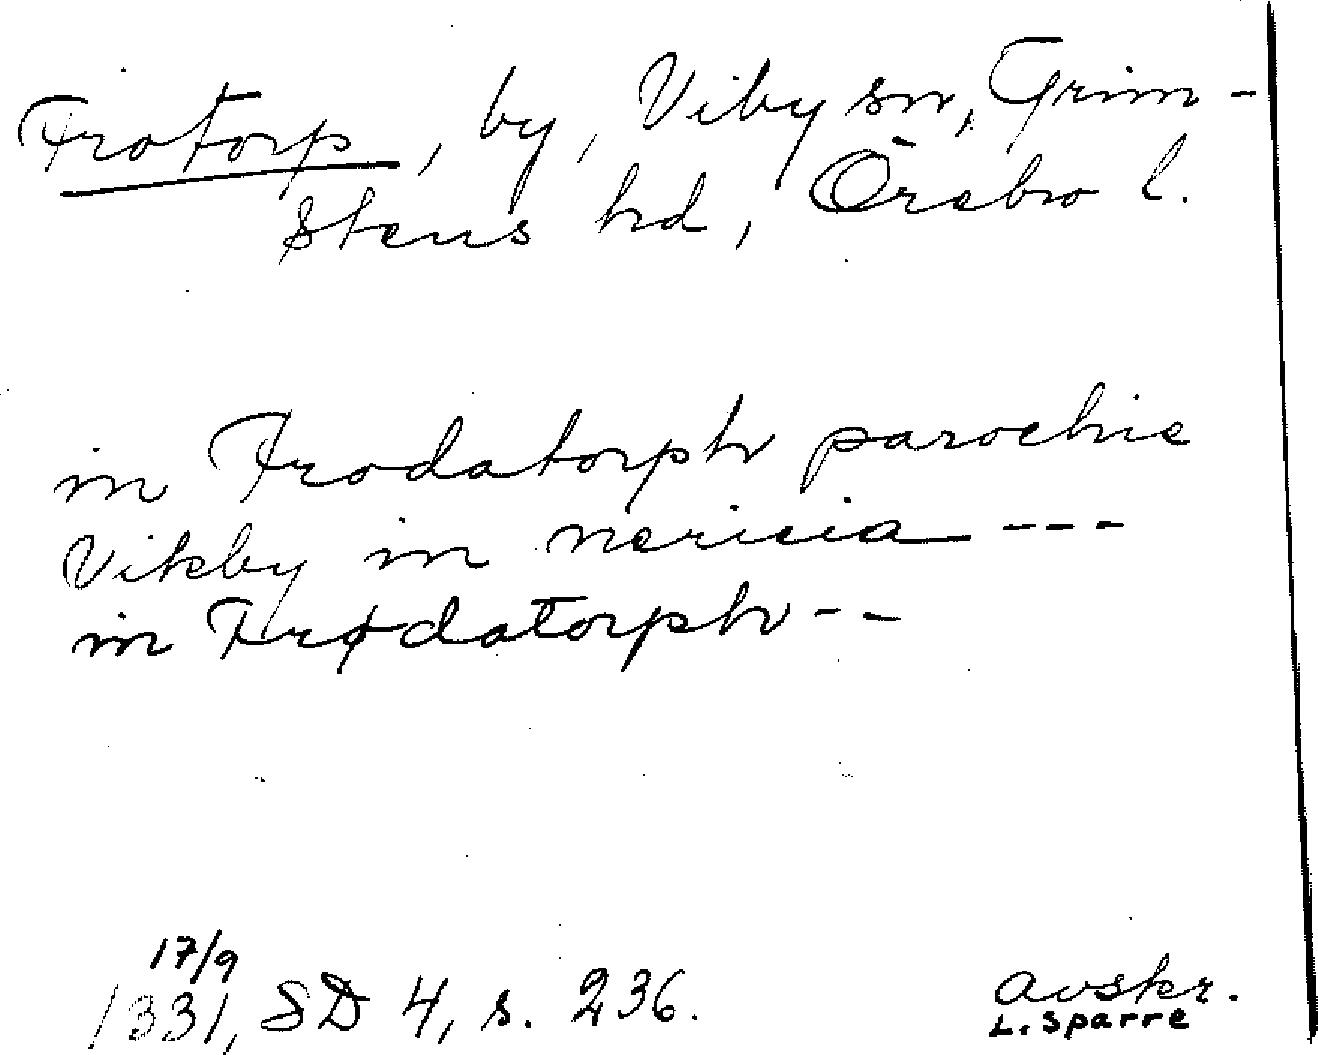 Frotorp, by, Viby sn, Grim-
stens hd, Örebro l.
in Frodatorph parochie
Vikby in nericia ---
in Frødatorph --
17/9
1331, SD 4, s. 236.
Avskr.
L. Sparre